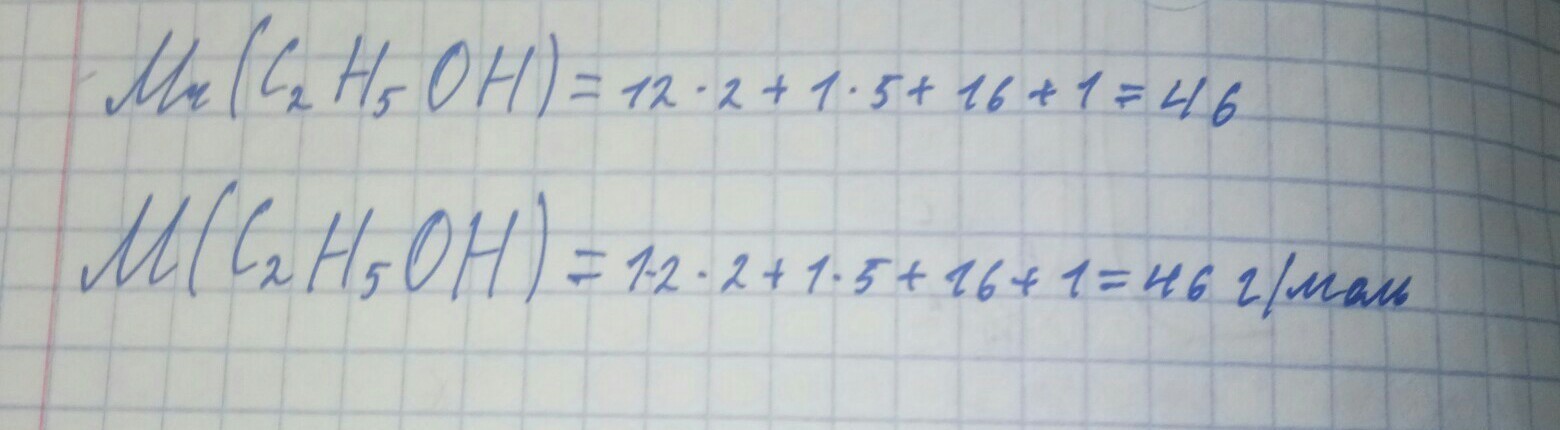 Mr(C₂H₅OH) = 12·2 + 1·5 + 16 + 1 = 46
M(C₂H₅OH) = 12·2 + 1·5 + 16 + 1 = 46 г/моль